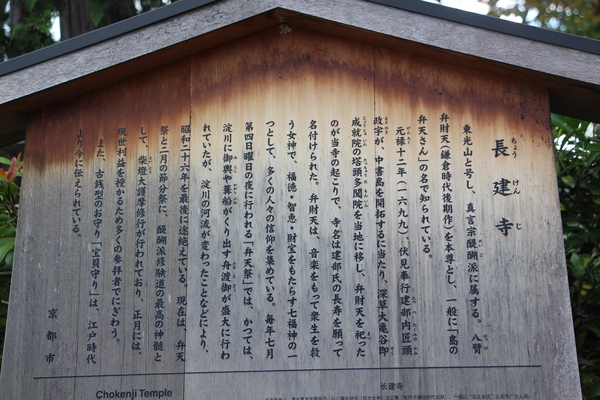 長建寺
ちょうけんじ
東光山と号し、真言宗醍醐派に属する。八臂
弁財天(鎌倉時代後期作)を本尊とし、一般に「島の
弁天さん」の名で知られている。
元禄十二年(一六九九)、伏見奉行建部内匠頭
政宇が、中書島を開拓するに当たり、深草大亀谷即
成就院の塔頭多聞院を当地に移し、弁財天を祀った
のが当寺の起こりで、寺名は建部氏の長寿を願って
名付けられた。弁財天は、音楽をもって衆生を救
う女神で、福徳・智恵・財宝をもたらす七福神の一
つとして、多くの人々の信仰を集めている。毎年七月
第四日曜日の夜に行われる「弁天祭」では、かつては、
淀川に御輿や篝船がくり出す舟渡御が盛大に行わ
れていたが、淀川の河流が変わったことなどにより、
昭和二十六年を最後に途絶えている。現在は、弁天
祭と二月の節分祭に、醍醐派修験道の最高の神髄と
して、柴燈大護摩修行が行われており、正月には、
現世利益を授かるため多くの参拝者でにぎわう。
また、古銭型のお守り「宝貝守り」は、江戸時代
より今に伝えられている。
京都市
Chokenji Temple
长建寺